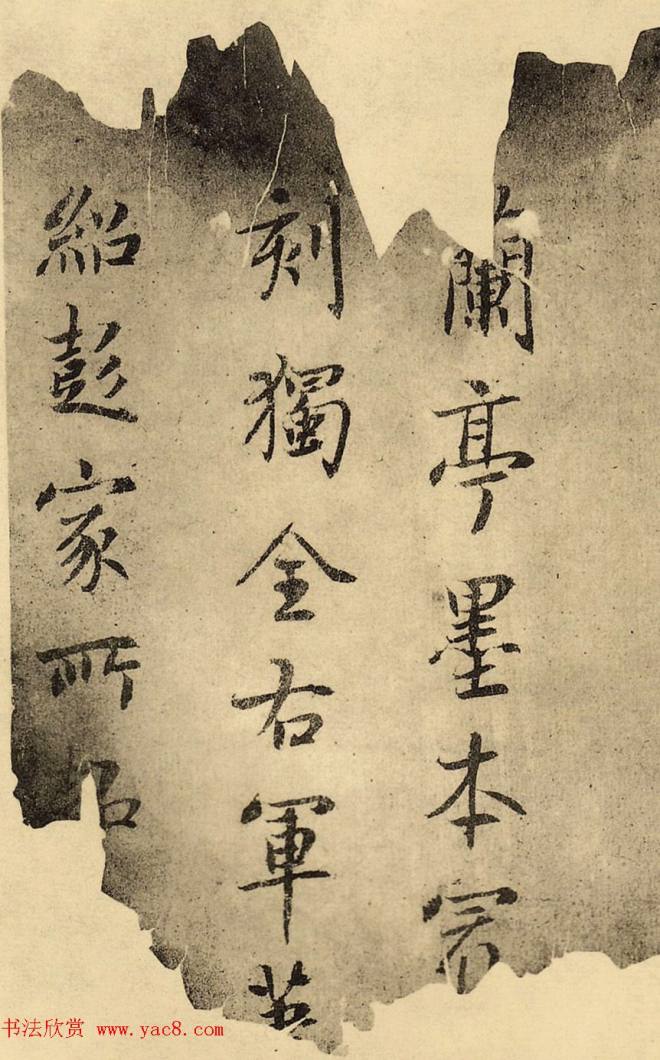 蘭亭墨本㝡
刻獨全右軍
紹彭家所
书法欣赏 www.yac8.com